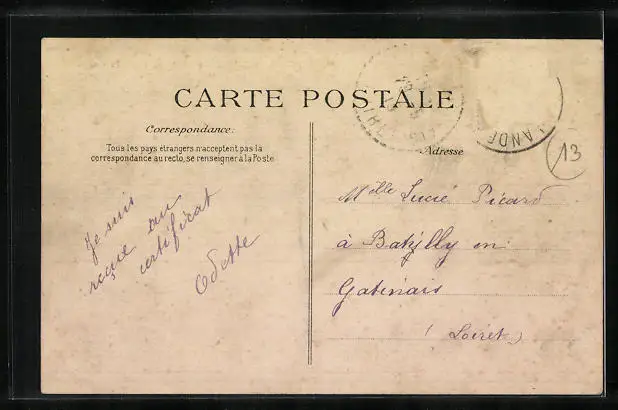 CARTE POSTALE
Correspondance:
Tous les pays étrangers n'acceptent pas la
correspondance au recto, se renseigner à la Poste
Adresse
LANDE
13
Je suis
reçue au
certificat
Odette
Mlle Lucie Picard
à Batilly en
Gatinais
(Loiret)